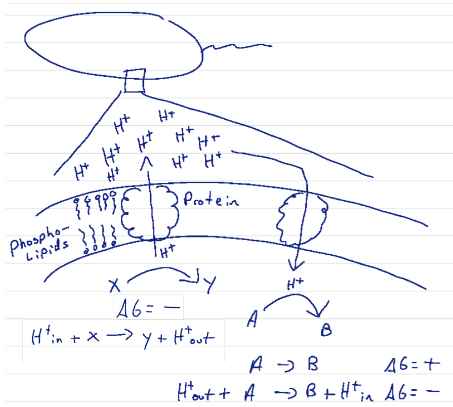 H+
H+
H+
H+
H+
H+
H+
H+
H+
H+
Protein
Phospho-
Lipids
H+
X
Y
H+
ΔG = -
A
B
H+in + X → Y + H+out
A → B ΔG = +
H+out + A → B + H+in ΔG = -